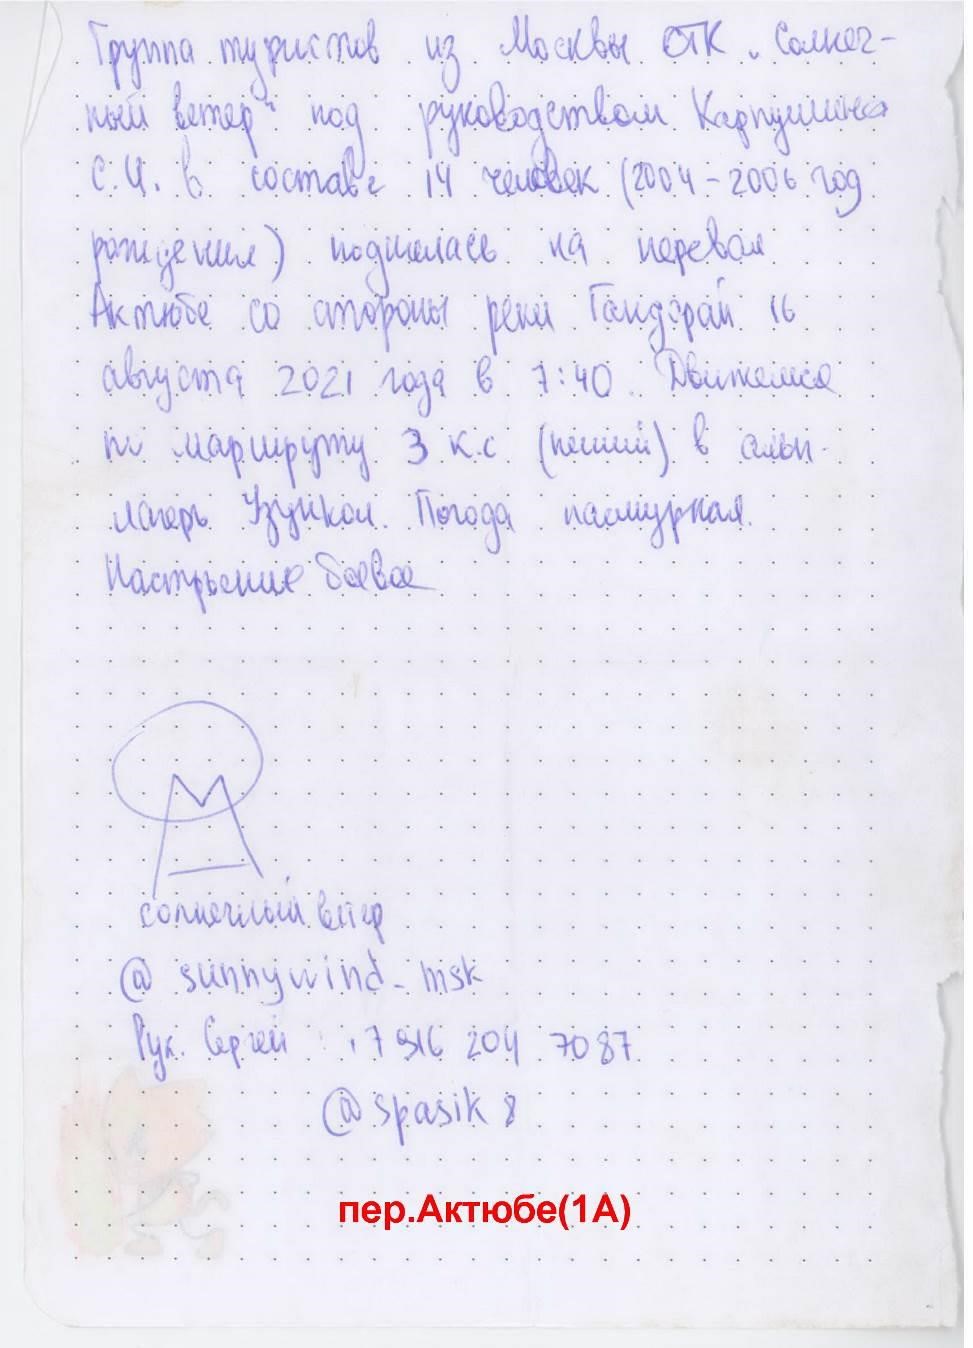 Группа туристов из Москвы СТК „Солнеч-
ный ветер" под руководством Карпушина
С.И. в составе 14 человек (2004-2006 год
рождения) поднялась на перевал
Актюбе со стороны реки Гондарай 16
августа 2021 года в 7:40. Движемся
по маршруту 3 к.с (пеший) в альп-
лагерь Узункол. Погода пасмурная.
Настроение боевое
солнечный ветер
@ sunnywind_msk
Рук. Сергей +7 916 204 7087
@spasik8
пер.Актюбе(1А)